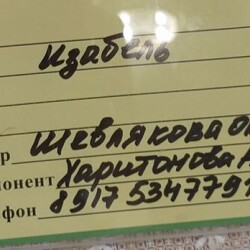 Изабель
р Шевлякова О
понент Харитонова А
фон 8917 5347792